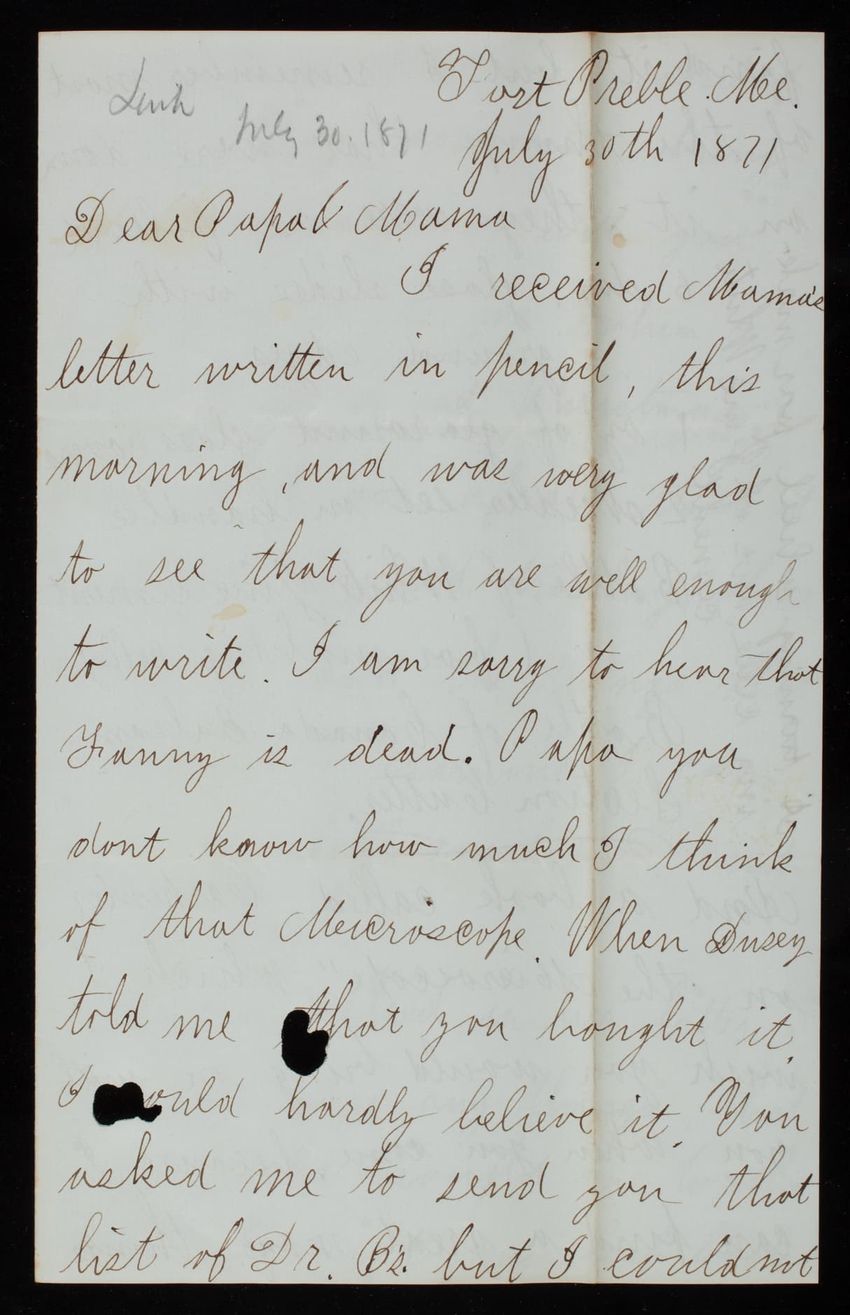 Fort Preble. Me.
July 30. 1871
July 30th 1871
Dear Papa & Mama
I received Mama's
letter written in pencil, this
morning, and was very glad
to see that you are well enough
to write. I am sorry to hear that
Fanny is dead. Papa you
dont know how much I think
of that Meicroscope. When Dusey
told me that you bought it,
I could hardly believe it. You
asked me to send you that
list of Dr. B's. but I could not